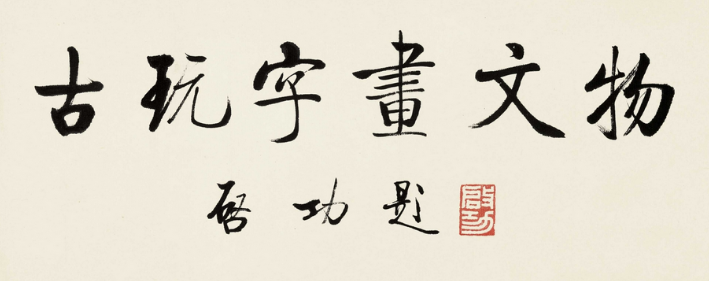 古玩字畫文物
啓功題
啟功